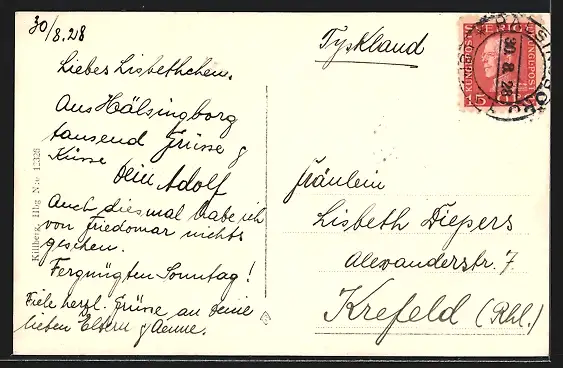 30/8.28
Liebes Lisbethchen.
Aus Hälsingborg
tausend Grüsse &
Küsse
Dein Adolf
Auch diesmal habe ich
von Friedomar nichts
gesehen.
Fergnügten Sonntag!
Viele herzl. Grüsse an deine
lieben Eltern & Aenne.
Killberg, Hbg Nro 12328
Tyskland
SVERIGE
KUNGSPOST
15
30.8.28
Fräulein
Lisbeth Diepers
Alexanderstr. 7
Krefeld (Rhl.)